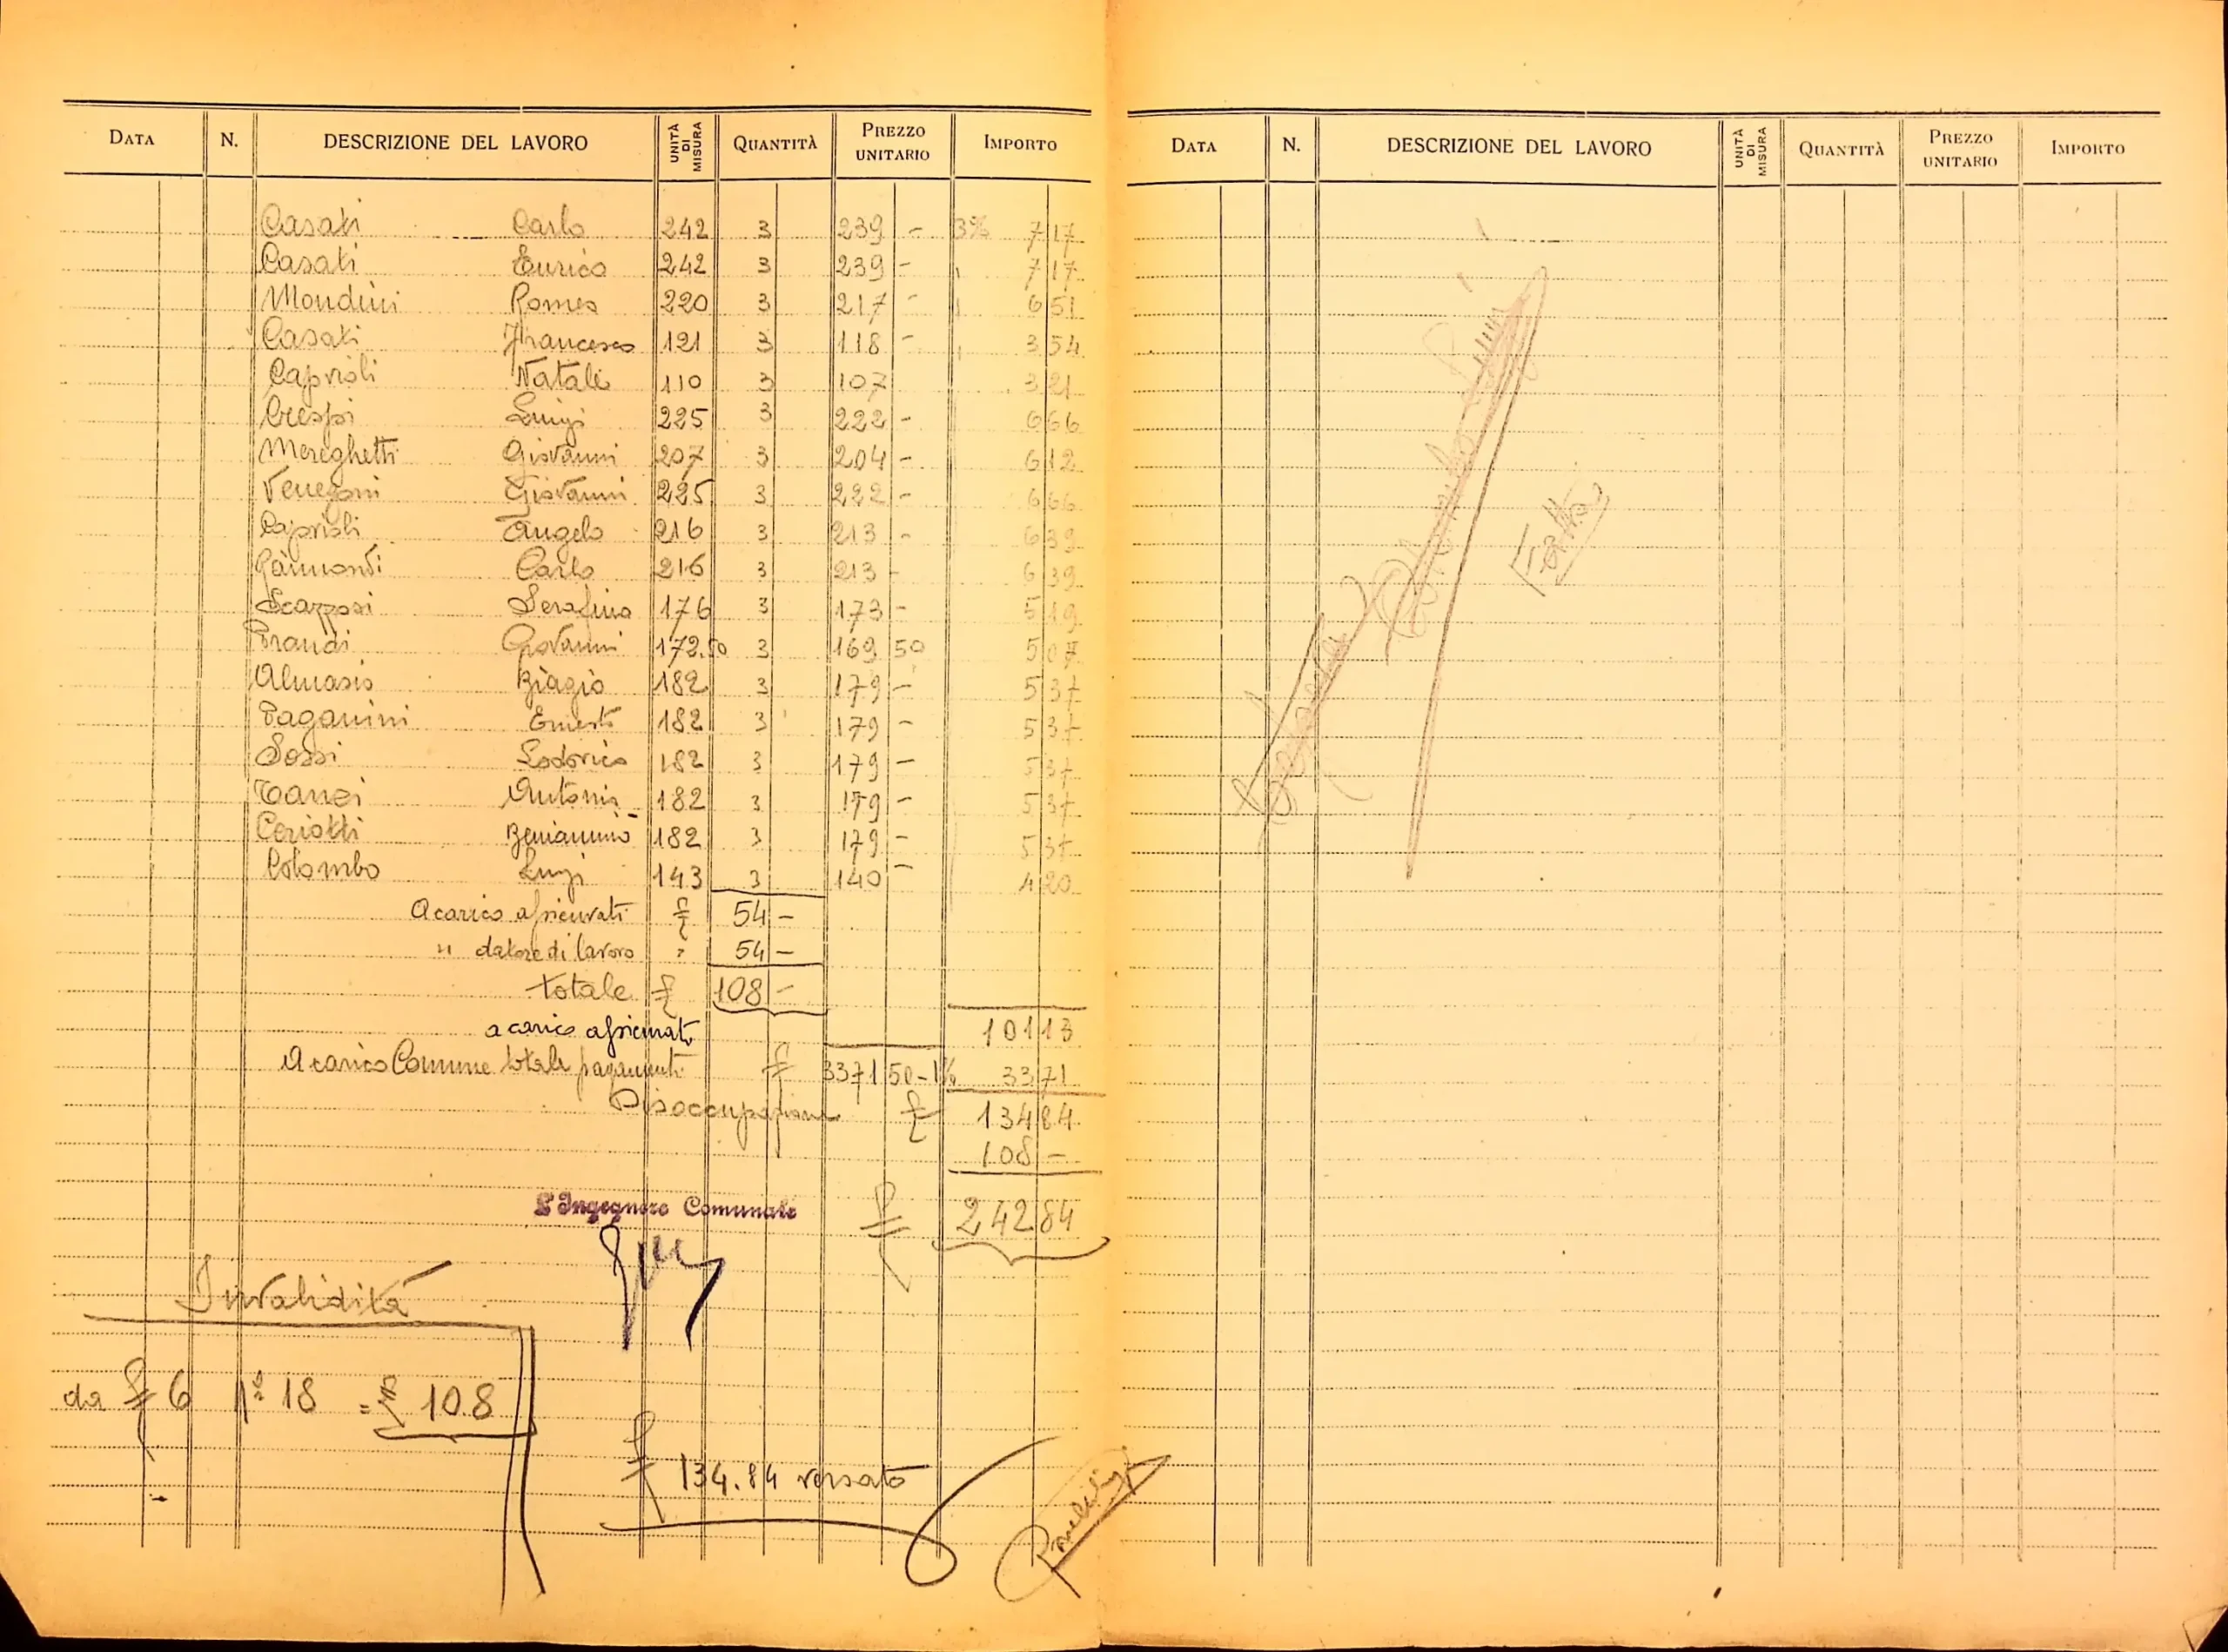 DATA N. DESCRIZIONE DEL LAVORO UNITÀ DI MISURA QUANTITÀ PREZZO UNITARIO IMPORTO
Casati Carlo 242 3 239 - 3% 7 17
Casati Enrico 242 3 239 - " 7 17
Mondini Romeo 220 3 217 - " 6 51
Casati Francesco 121 3 118 - " 3 54
Caprioli Natale 110 3 107 3 21
Crespi Luigi 225 3 222 - 6 66
Mereghetti Giovanni 207 3 204 - 6 12
Venegoni Giovanni 225 3 222 - 6 66
Caprioli Angelo 216 3 213 - 6 39
Raimondi Carlo 216 3 213 - 6 39
Scazzosi Serafino 176 3 173 - 5 19
Prandi Giovanni 172.50 3 169 50 5 07
Almasio Biagio 182 3 179 - 5 37
Paganini Ernesto 182 3 179 - 5 37
Sossi Lodovico 182 3 179 - 5 37
Tanzi Antonio 182 3 179 - 5 37
Ceriotti Beniamino 182 3 179 - 5 37
Colombo Luigi 143 3 140 - 4 20
A carico assicurati £ 54 -
" datore di lavoro " 54 -
totale £ 108 -
a carico assicurati 101 13
A carico Comune totale pagamenti £ 3371 50 - 1% 33 71
Disoccupazione £ 134 84
108 -
£ 242 84
L'Ingegnere Comunale
Invalidità
da £ 6 N° 18 = £ 108
£ 134.84 versato
DATA N. DESCRIZIONE DEL LAVORO UNITÀ DI MISURA QUANTITÀ PREZZO UNITARIO IMPORTO
Fatto